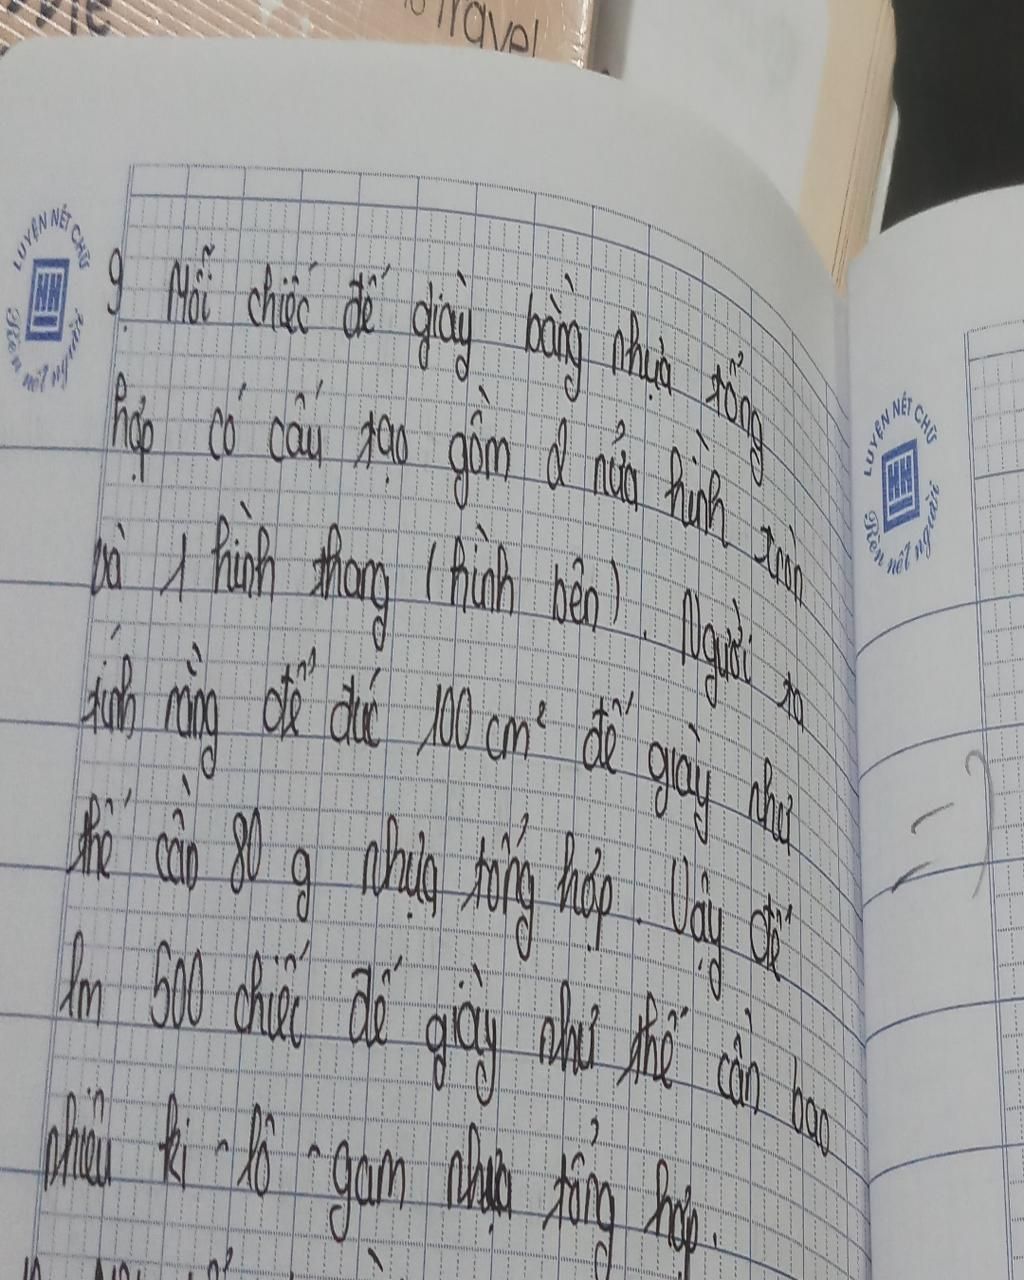 Travel
LUYỆN NÉT CHỮ
Rèn nết người
9. Mỗi chiếc đế giày bằng nhựa tổng
hợp có cấu tạo gồm 2 nửa hình tròn
và 1 hình thang (hình bên). Người ta
tính rằng để đúc 100 cm² đế giày như
thế cần 80 g nhựa tổng hợp. Vậy để
lm 500 chiếc đế giày như thế cần bao
nhiêu ki-lô-gam nhựa tổng hợp.
LUYỆN NÉT CHỮ
Rèn nết người